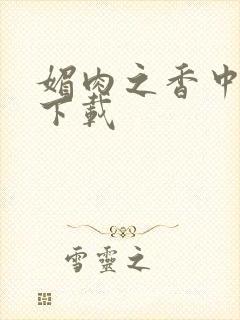 媚肉之香中
下載
雪靈之